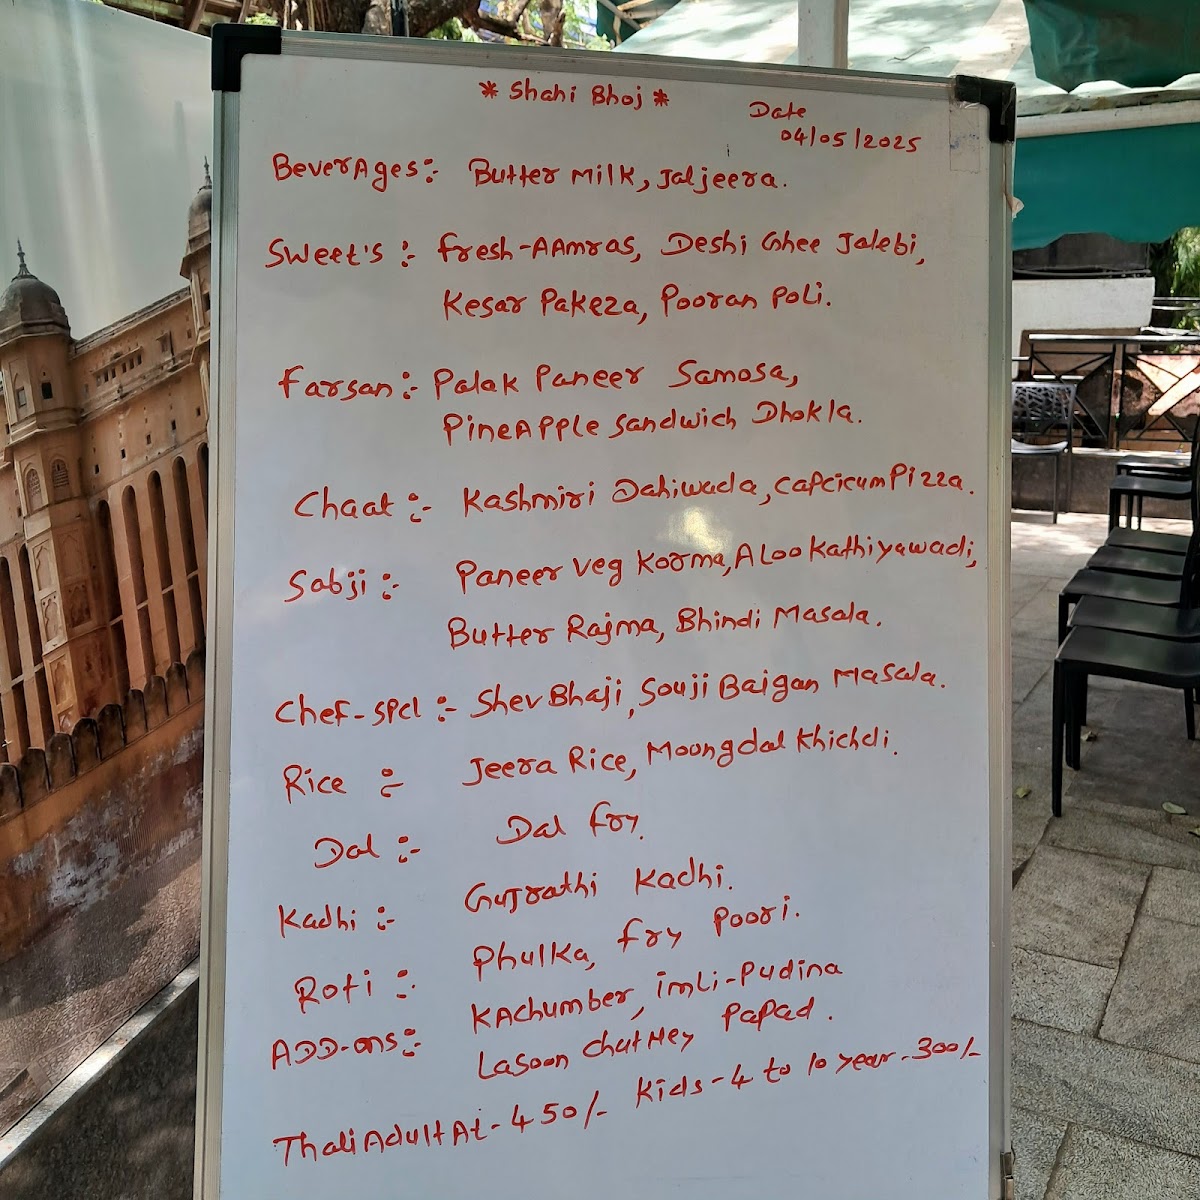 * Shahi Bhoj *
Date
04/05/2025
BeverAges:- Butter Milk, Jaljeera.
Sweet's :- Fresh-AAmras, Deshi Ghee Jalebi,
Kesar Pakeza, Pooran Poli.
Farsan:- Palak Paneer Samosa,
PineApple Sandwich Dhokla.
Chaat :- Kashmiri Dahiwada, Capcicum Pizza.
Sabji :- Paneer Veg Korma, ALoo Kathiyawadi,
Butter Rajma, Bhindi Masala.
Chef-Spcl :- Shev Bhaji, Souji Baigan Masala.
Rice :- Jeera Rice, Moongdal Khichdi.
Dal :- Dal Fry.
Kadhi :- Gujrathi Kadhi.
Roti :- Phulka, Fry Poori.
ADD-ons:- KAchumber, imli-Pudina
Lasoon Chutney Papad.
Thali Adult At - 450/- Kids - 4 to 10 year - 300/-